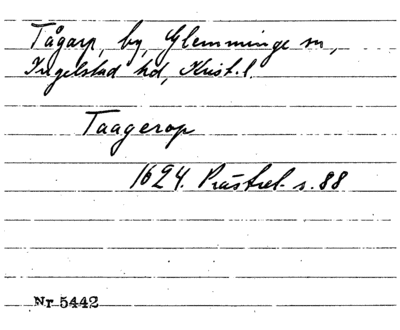 Tågarp, by, Glemminge sn,
Ingelstad hd, Krist. l.
Taagerop
1624. Prästrel. s. 88
Nr 5442